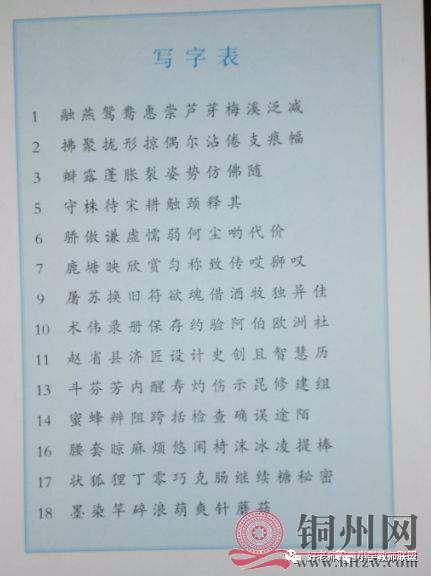 写字表
1 融燕鸳鸯惠崇芦芽梅溪泛减
2 拂聚拢形掠偶尔沾倦支痕幅
3 瓣露蓬胀裂姿势仿佛随
5 守株待宋耕触颈释其
6 骄傲谦虚懦弱何尘哟代价
7 鹿塘映欣赏匀称致传哎狮叹
9 屠苏换旧符欲魂借酒牧独异佳
10 术伟录册保存约验阿伯欧洲社
11 赵省县济匠设计史创且智慧历
13 斗芬芳内醒寿灼伤示昆修建组
14 蜜蜂辨阻跨括检查确误途陌
16 腰套晾麻烦悠闲椅沫冰凌提棒
17 状狐狸丁零巧克肠继续糖秘密
18 墨染竿碎浪葫爽针蘑菇
铜州网
www.bhzw.com